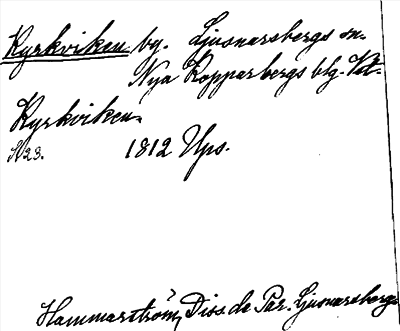 Kyrkviken by. Ljusnarsbergs sn.
Nya Kopparbergs blg. Vstm.
Kyrkviken.
S. 23. 1812 Ups.
Hammarström, Diss. de Par. Ljusnarsbergs